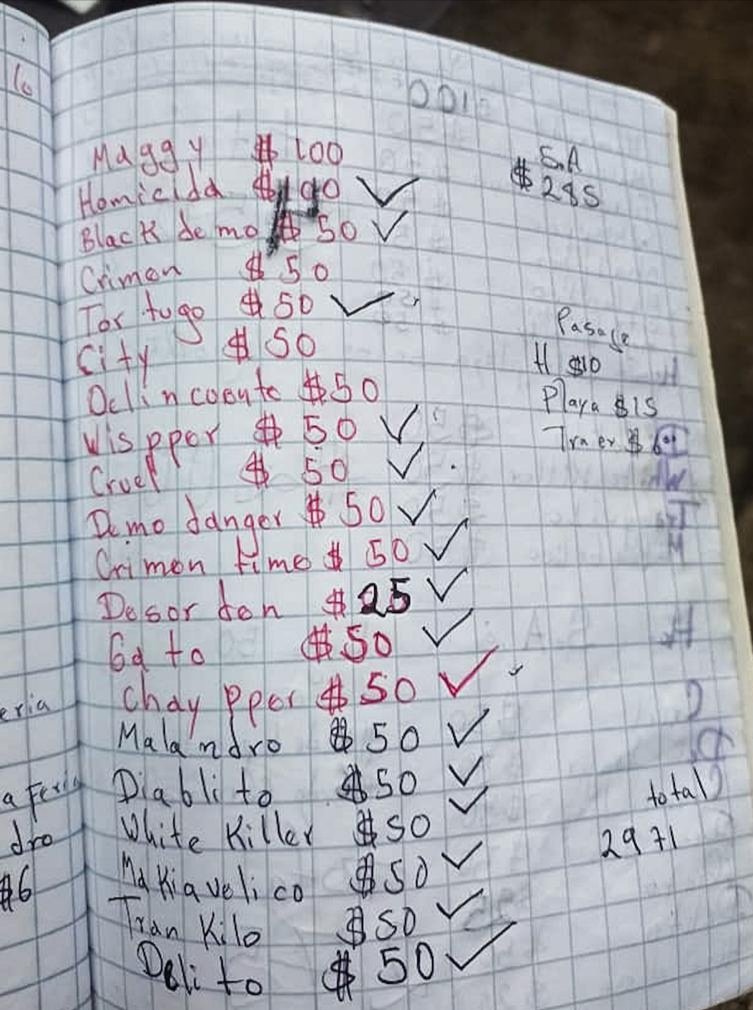 001
Maggy $ 100
Homicida $ 100
Black demo $ 50
Crimen $ 50
Tortugo $ 50
City $ 50
Delincoente $50
Wispper $ 50
Cruel $ 50
Demo danger $ 50
Crimen time $ 50
Desorden $ 25
Gato $50
Chaypper $ 50
Malandro $ 50
Diablito $50
White Killer $50
Makiavelico $50
Tran Kilo $50
Delito $ 50
S.A
$ 285
Pasage
H $10
Playa $15
Traer $
total
2971
eria
a Feria
dro
$6